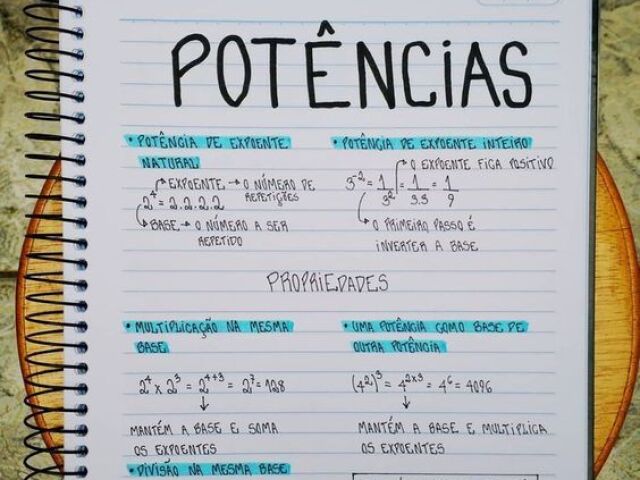 POTÊNCIAS
• POTÊNCIA DE EXPOENTE
NATURAL
EXPOENTE → O NÚMERO DE
REPETIÇÕES
2⁴ = 2.2.2.2
BASE → O NÚMERO A SER
REPETIDO
• POTÊNCIA DE EXPOENTE INTEIRO
O EXPOENTE FICA POSITIVO
3⁻² = 1/3² = 1/3.3 = 1/9
O PRIMEIRO PASSO É
INVERTER A BASE
PROPRIEDADES
• MULTIPLICAÇÃO NA MESMA
BASE
2⁴ x 2³ = 2⁴⁺³ = 2⁷ = 128
MANTÉM A BASE E SOMA
OS EXPOENTES
• DIVISÃO NA MESMA BASE
• UMA POTÊNCIA COMO BASE DE
OUTRA POTÊNCIA
(4²)³ = 4²ˣ³ = 4⁶ = 4096
MANTÉM A BASE E MULTIPLICA
OS EXPOENTES